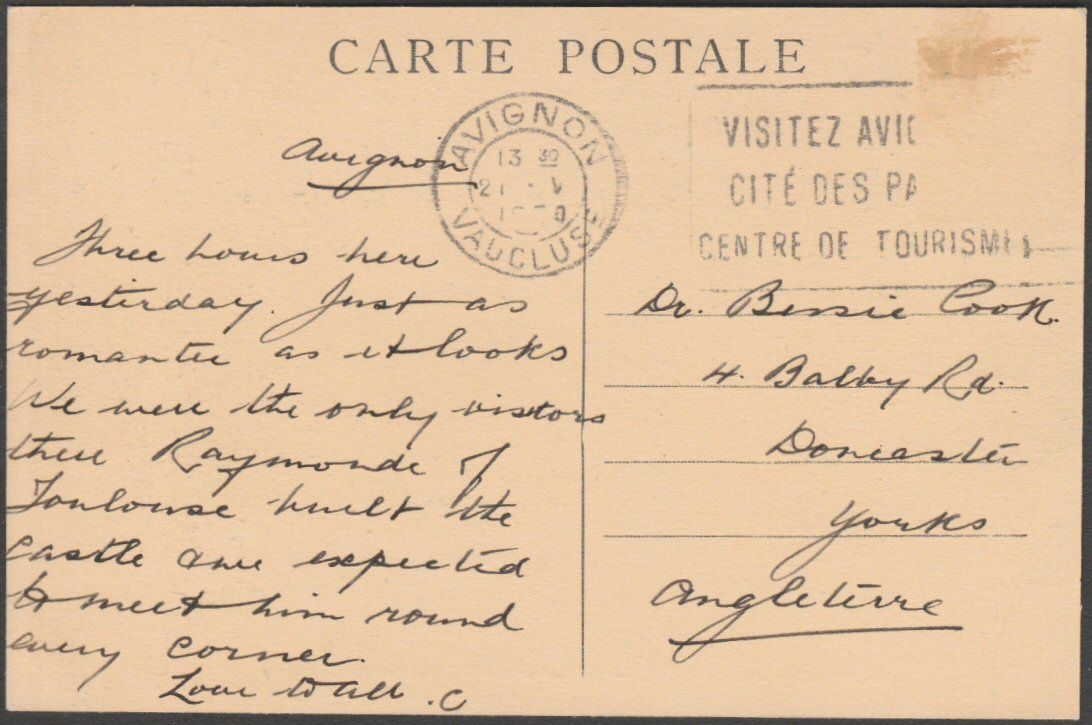 CARTE POSTALE
AVIGNON
13 30
VAUCLUSE
VISITEZ AVIG
CITÉ DES PA
CENTRE DE TOURISME
Avignon
Three hours here
yesterday. Just as
romantic as it looks
We were the only visitors
there Raymonde of
Toulouse built the
castle & we expected
to meet him round
every corner.
Love to all . C
Dr. Bessie Cook.
4. Balby Rd.
Doncaster
Yorks
Angleterre